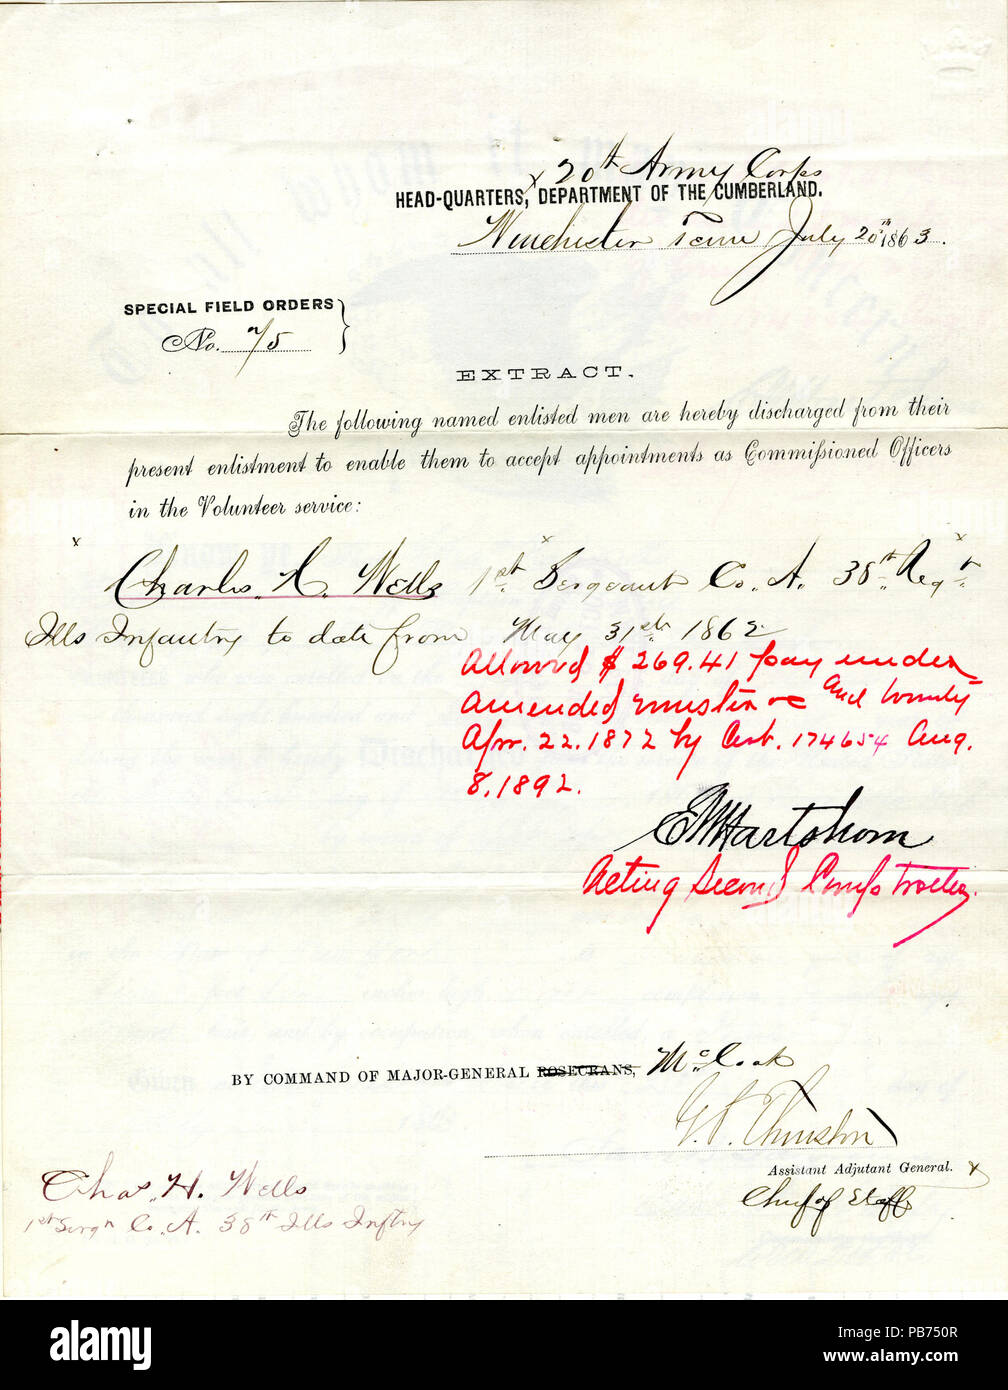 20th Army Corps
HEAD-QUARTERS, DEPARTMENT OF THE CUMBERLAND.
Winchester Tenn July 20th 1863.
SPECIAL FIELD ORDERS
No. 75
EXTRACT.
The following named enlisted men are hereby discharged from their
present enlistment to enable them to accept appointments as Commissioned Officers
in the Volunteer service:
x x x
Charles H. Wells 1st Sergeant Co. A. 38th Regt
Ills Infantry to date from May 31st 1862
Allowed $269.41 pay under
Amended muster and
Apr. 22. 1872 by Cert. 174654 Aug.
8. 1892.
E N Hartshorn
Acting Second Comptroller.
BY COMMAND OF MAJOR-GENERAL ROSECRANS, McCook
Assistant Adjutant General. x
Chief of Staff
Chas. H. Wells
1st Sergt Co. A. 38th Ills Inftry
alamy
Image ID: PB750R
www.alamy.com